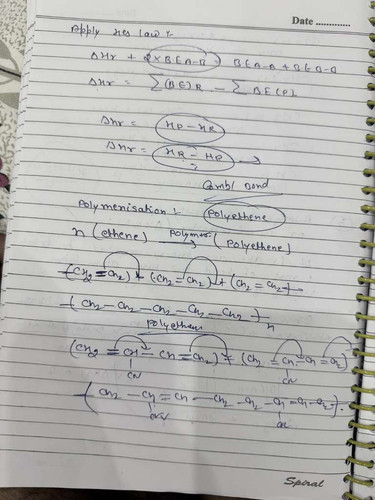 Date ............
Apply Hes law :-
ΔHr + 2×BEA-B = BEA-A + BEB-B
ΔHr = Σ(BE)R - ΣBE(P)
ΔHr = HP - HR
ΔHr = HR - HP →
Comb/ bond
Polymerisation :- Polyethene
n (ethene) → Polymer (polyethene)
(CH2 = CH2) + (CH2 = CH2) + (CH2 = CH2)
( CH2 - CH2 - CH2 - CH2 - CH2 )n
polyethene
(CH2 = CH - CH = CH2) + (CH2 = CH - CH = CH2)
CN CN
( CH2 - CH = CH - CH2 - CH2 - CH = CH - CH2 )
CN
Spiral